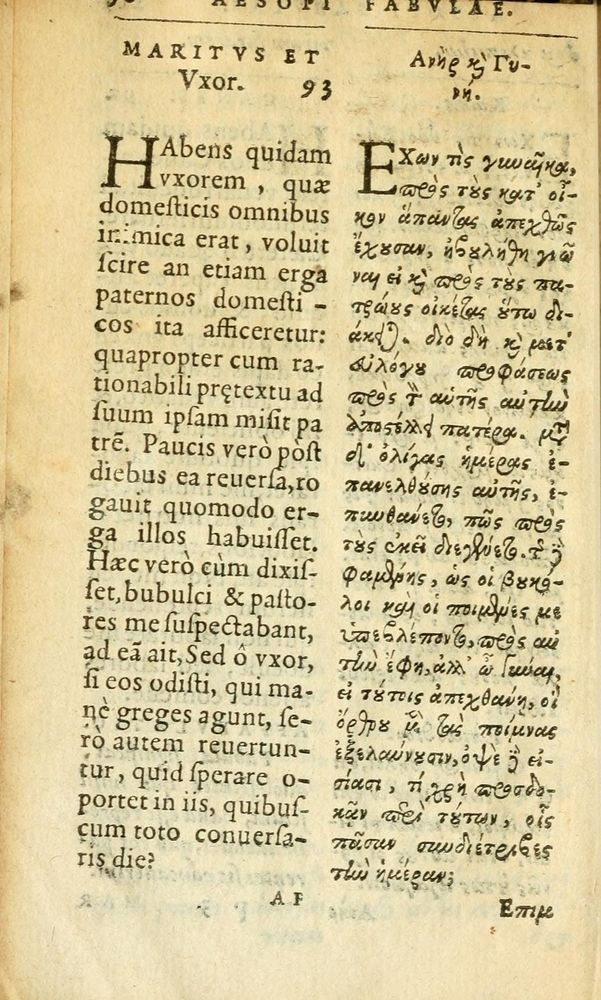 AESOPI FABVLAE.
MARITVS ET
Vxor. 93
HAbens quidam
vxorem, quæ
domesticis omnibus
inimica erat, voluit
scire an etiam erga
paternos domesti-
cos ita afficeretur:
quapropter cum ra-
tionabili prętextu ad
suum ipsam misit pa
trẽ. Paucis verò pòst
diebus ea reuersa, ro
gauit quomodo er-
ga illos habuisset.
Hæc verò cùm dixis-
set, bubulci & pasto-
res me suspectabant,
ad eã ait, Sed ô vxor,
si eos odisti, qui ma-
nè greges agunt, se-
rò autem reuertun-
tur, quid sperare o-
portet in iis, quibus-
cum toto conuersa-
ris die?
AP
Ανὴρ κὶ Γυ-
νή.
ΕΧων τὶς γυναῖκα,
πρὸς τοὺς κατ' οἶ-
κον ἅπαντας ἀπεχθῶς
ἔχουσαν, ἠβουλήθη γνῶ
ναι εἰ κὶ πρὸς τοὺς πα-
τρώους οἰκέτας οὕτω δι-
άκειται. διὸ δὴ κὶ μετ'
εὐλόγου προφάσεως
πρὸς τὸν αὐτῆς αὐτὴν
ἀποστέλλει πατέρα. μετὰ
δι' ὀλίγας ἡμέρας ἐ-
πανελθούσης αὐτῆς, ἐ-
πυνθάνετο, πῶς πρὸς
τοὺς ἐκεῖ διεγένετο. τῆς δὲ
φαμένης, ὡς οἱ βουκό-
λοι καὶ οἱ ποιμένες με
ὑπεβλέποντο, πρὸς αὐ
τὴν ἔφη, ἀλλ' ὦ γύναι,
εἰ τούτοις ἀπεχθάνῃ, οἳ
ὄρθρου μὲν τὰς ποίμνας
ἐξελαύνουσιν, ὀψὲ δὲ εἰ-
σίασι, τί χρὴ προσδο-
κᾶν περὶ τούτων, οἷς
πᾶσαν συνδιέτριβες
τὴν ἡμέραν;
Επιμ